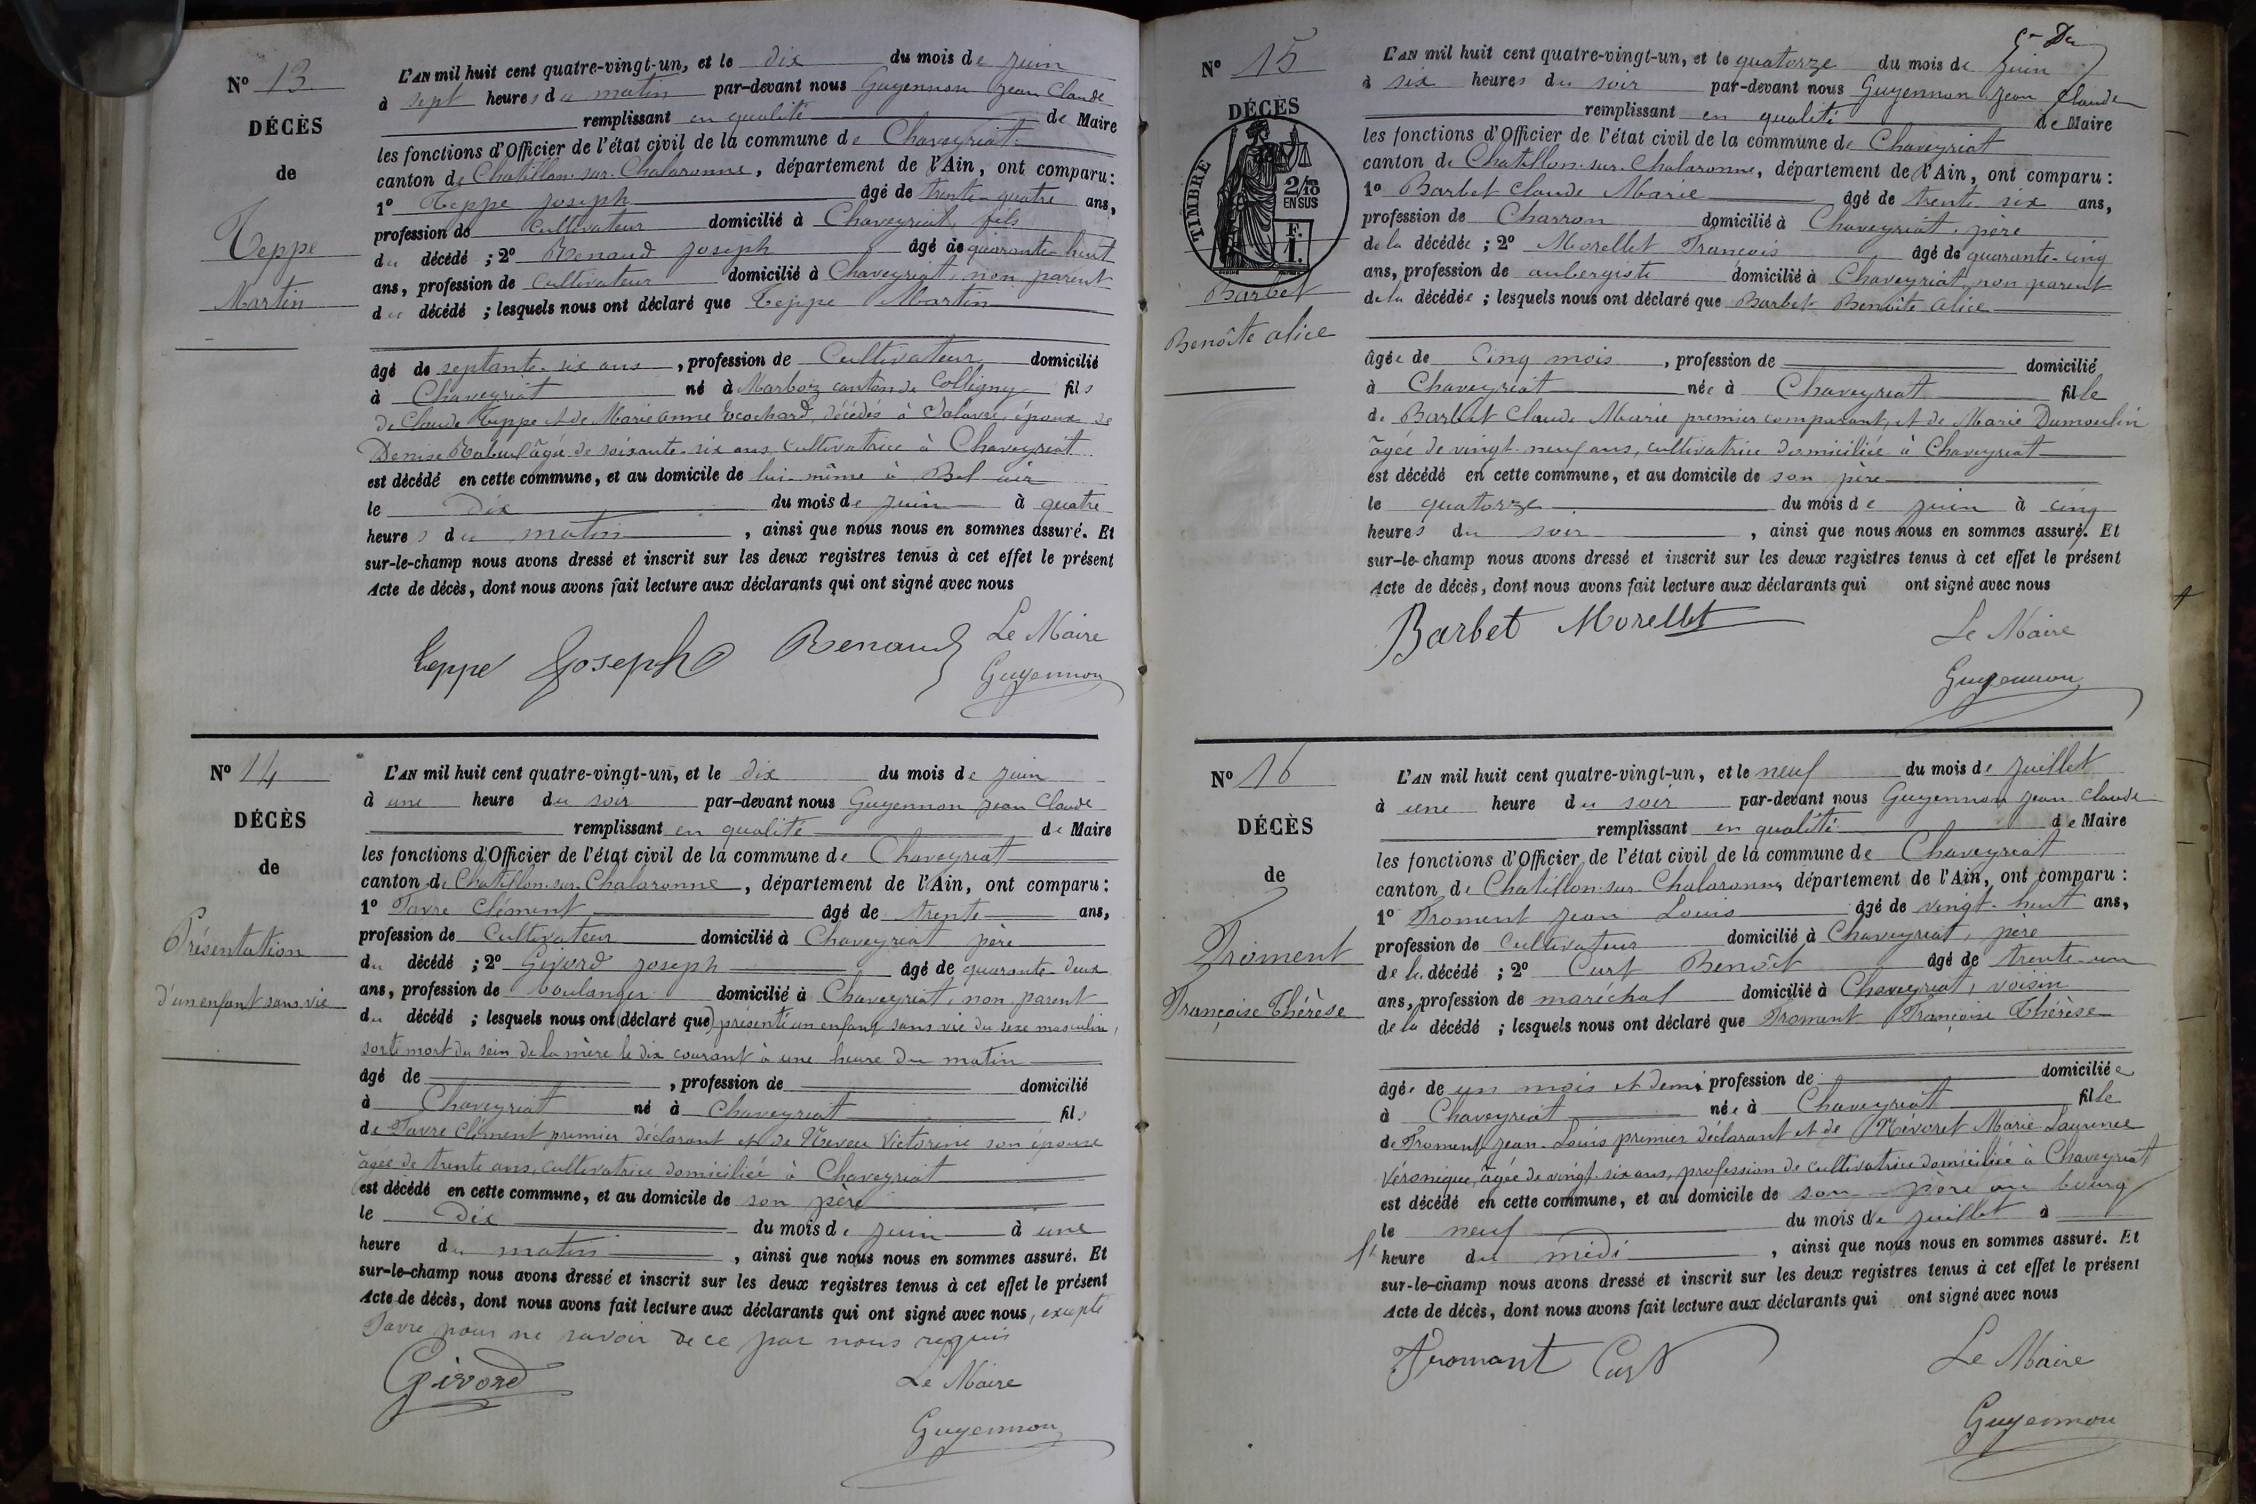 Nº 13
DÉCÈS
de
Teppe
Martin
L'AN mil huit cent quatre-vingt-un, et le dix du mois de juin
à sept heures du matin par-devant nous Guyennon Jean Claude
remplissant en qualité de Maire
les fonctions d'Officier de l'état civil de la commune de Chaveyriat
canton de Chatillon-sur-Chalaronne, département de l'Ain, ont comparu :
1º Teppe Joseph âgé de trente-quatre ans,
profession de Cultivateur domicilié à Chaveyriat, fils
du décédé ; 2º Renaud Joseph âgé de quarante-huit
ans, profession de cultivateur domicilié à Chaveyriat, non parent
du décédé ; lesquels nous ont déclaré que Teppe Martin
âgé de septante-six ans, profession de Cultivateur domicilié
à Chaveyriat né à Marboz canton de Colligny fils
de Claude Teppe et de Marie Anne Ecochard, décédés à Jalavre, époux de
Denise âgée de soixante-six ans, cultivatrice à Chaveyriat
est décédé en cette commune, et au domicile de lui-même à Bel air
le Dix du mois de juin à quatre
heures du matin, ainsi que nous nous en sommes assuré. Et
sur-le-champ nous avons dressé et inscrit sur les deux registres tenus à cet effet le présent
Acte de décès, dont nous avons fait lecture aux déclarants qui ont signé avec nous
Teppe Joseph Renaud Le Maire
Guyennon
Nº 14
DÉCÈS
de
Présentation
d'un enfant sans vie
L'AN mil huit cent quatre-vingt-un, et le dix du mois de juin
à une heure du soir par-devant nous Guyennon Jean Claude
remplissant en qualité de Maire
les fonctions d'Officier de l'état civil de la commune de Chaveyriat
canton de Chatillon-sur-Chalaronne, département de l'Ain, ont comparu :
1º Favre Clément âgé de trente ans,
profession de Cultivateur domicilié à Chaveyriat père
du décédé ; 2º Givord Joseph âgé de quarante-deux
ans, profession de boulanger domicilié à Chaveyriat, non parent
du décédé ; lesquels nous ont (déclaré que) présenté un enfant sans vie du sexe masculin,
sorti mort du sein de la mère le dix courant à une heure du matin
âgé de , profession de domicilié
à Chaveyriat né à Chaveyriat fils
de Favre Clément premier déclarant et de Neveu Victorine son épouse
âgée de trente ans, cultivatrice domiciliée à Chaveyriat
est décédé en cette commune, et au domicile de son père
le Dix du mois de juin à une
heure du matin, ainsi que nous nous en sommes assuré. Et
sur-le-champ nous avons dressé et inscrit sur les deux registres tenus à cet effet le présent
Acte de décès, dont nous avons fait lecture aux déclarants qui ont signé avec nous, excepté
Favre pour ne savoir de ce par nous requis
Givord
Le Maire
Guyennon
Nº 15
DÉCÈS
TIMBRE
2/10
EN SUS
F.
1.
Barbet
Benoîte alice
L'AN mil huit cent quatre-vingt-un, et le quatorze du mois de juin
à six heures du soir par-devant nous Guyennon Jean Claude
remplissant en qualité de Maire
les fonctions d'Officier de l'état civil de la commune de Chaveyriat
canton de Chatillon-sur-Chalaronne, département de l'Ain, ont comparu :
1º Barbet Claude Marie âgé de trente-six ans,
profession de Charron domicilié à Chaveyriat, père
de la décédée ; 2º Morellet François âgé de quarante-cinq
ans, profession de aubergiste domicilié à Chaveyriat, non parent
de la décédée ; lesquels nous ont déclaré que Barbet Benoite alice
âgée de Cinq mois, profession de domicilié
à Chaveyriat née à Chaveyriat fille
de Barbet Claude Marie premier comparant, et de Marie Dumoulin
âgée de vingt-neuf ans, cultivatrice domiciliée à Chaveyriat
est décédé en cette commune, et au domicile de son père
le quatorze du mois de juin à cinq
heures du soir, ainsi que nous nous en sommes assuré. Et
sur-le-champ nous avons dressé et inscrit sur les deux registres tenus à cet effet le présent
Acte de décès, dont nous avons fait lecture aux déclarants qui ont signé avec nous
Barbet Morellet
Le Maire
Guyennon
Nº 16
DÉCÈS
de
Froment
Françoise Thérèse
L'AN mil huit cent quatre-vingt-un, et le neuf du mois de juillet
à une heure du soir par-devant nous Guyennon Jean Claude
remplissant en qualité de Maire
les fonctions d'Officier de l'état civil de la commune de Chaveyriat
canton de Chatillon-sur-Chalaronne, département de l'Ain, ont comparu :
1º Froment Jean Louis âgé de vingt-huit ans,
profession de Cultivateur domicilié à Chaveyriat, père
de la décédé ; 2º Curt Benoît âgé de trente-un
ans, profession de maréchal domicilié à Chaveyriat, voisin
de la décédé ; lesquels nous ont déclaré que Froment Françoise Thérèse
âgée de un mois et demi profession de domiciliée
à Chaveyriat née à Chaveyriat fille
de Froment Jean-Louis premier déclarant et de Nevoret Marie Laurence
Véronique, âgée de vingt-six ans, profession de cultivatrice domiciliée à Chaveyriat
est décédé en cette commune, et au domicile de son père au bourg
le neuf du mois de juillet à
heure du midi, ainsi que nous nous en sommes assuré. Et
sur-le-champ nous avons dressé et inscrit sur les deux registres tenus à cet effet le présent
Acte de décès, dont nous avons fait lecture aux déclarants qui ont signé avec nous
Fromant Curt
Le Maire
Guyennon